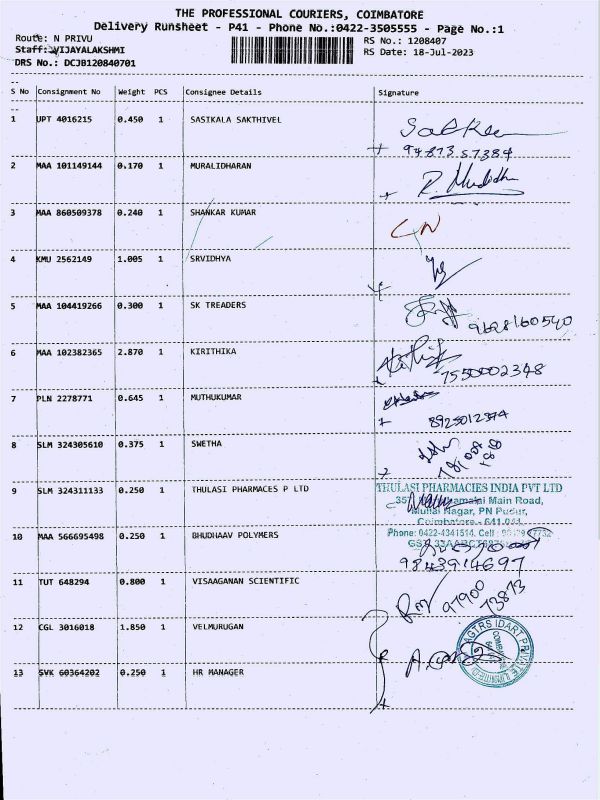 THE PROFESSIONAL COURIERS, COIMBATORE
Delivery Runsheet - P41 - Phone No.:0422-3505555 - Page No.:1
Route: N PRIVU
RS No.: 1208407
Staff: VIJAYALAKSHMI
RS Date: 18-Jul-2023
DRS No.: DCJB120840701
S No Consignment No Weight PCS Consignee Details Signature
1 UPT 4016215 0.450 1 SASIKALA SAKTHIVEL
9487357384
2 MAA 101149144 0.170 1 MURALIDHARAN
3 MAA 860509378 0.240 1 SHANKAR KUMAR
4 KMU 2562149 1.005 1 SRVIDHYA
5 MAA 104419266 0.300 1 SK TREADERS
9628160540
6 MAA 102382365 2.870 1 KIRITHIKA
7550002348
7 PLN 2278771 0.645 1 MUTHUKUMAR
8925012374
8 SLM 324305610 0.375 1 SWETHA
9 SLM 324311133 0.250 1 THULASI PHARMACES P LTD
THULASI PHARMACIES INDIA PVT LTD
Main Road,
Nagar, PN Pudur,
Coimbatore - 641 041
10 MAA 566695498 0.250 1 BHUDHAAV POLYMERS
Phone: 0422-4341514, Cell
9843914697
11 TUT 648294 0.800 1 VISAAGANAN SCIENTIFIC
97900
73873
12 CGL 3016018 1.850 1 VELMURUGAN
13 SVK 60364202 0.250 1 HR MANAGER